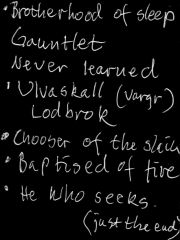 • Brotherhood of sleep
Gauntlet
Never learned
• Ulvaskall (Vargr)
Lodbrok
• Chooser of the slain
• Baptised of fire
• He who seeks.
(just the end)